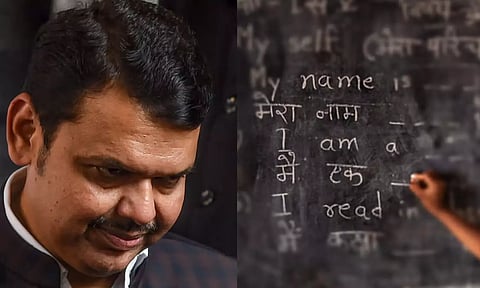 My self (मेरा
My name is — —
मेरा नाम _ _
I am a
मै एक _
I read in
मैं कक्षा